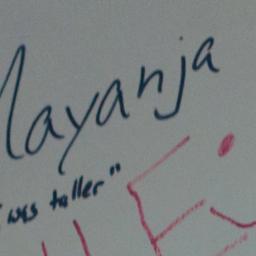 Mayanja
"was taller"